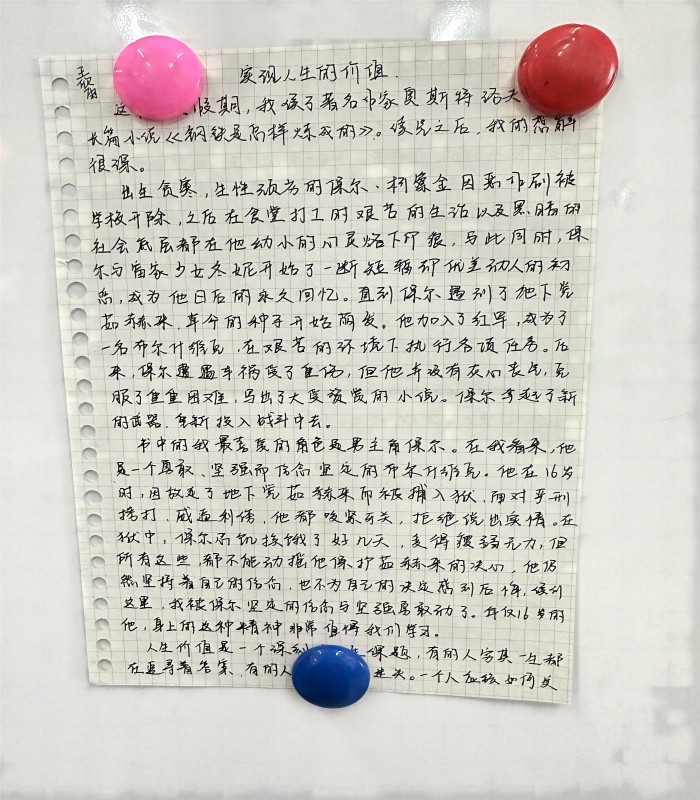 实现人生的价值.
这 假期,我读了著名作家奥斯特洛夫
长篇小说《钢铁是怎样炼成的》。读完之后,我的感触
很深。
出生贫寒,生性顽劣的保尔·柯察金因恶作剧被
学校开除,之后在食堂打工时艰苦的生活以及黑暗的
社会底层都在他幼小的心灵烙下印痕,与此同时,保
尔与富家少女冬妮开始了一断短暂却优美动人的初
恋,成为他日后的永久回忆。直到保尔遇到了地下党
茹赫来,革命的种子开始萌发。他加入了红军,成为了
一名布尔什维克,在艰苦的环境下执行各项任务。后
来,保尔遭遇车祸受了重伤,但他并没有灰心丧气,克
服了重重困难,写出了大受赞赏的小说。保尔拿起了新
的武器,重新投入战斗中去。
书中的我最喜爱的角色是男主角保尔。在我看来,他
是一个勇敢、坚强而信念坚定的布尔什维克。他在16岁
时,因救走了地下党茹赫来而被捕入狱,面对严刑
拷打,威逼利诱,他都咬紧牙关,拒绝说出实情。在
狱中,保尔 饥挨饿了好几天,变得瘦弱无力,但
所有这些,都不能动摇他保护茹赫来的决心,他仍
然坚持着自己的信念,也不为自己的决定感到后悔,读到
这里,我被保尔坚定的信念与坚强属敢动了。年仅16岁的
他,身上的这种精神非常值得我们学习。
人生价值是一个深刻 课题,有的人穷其一生都
在追寻着答案,有的人 迷失。一个人应该如何实